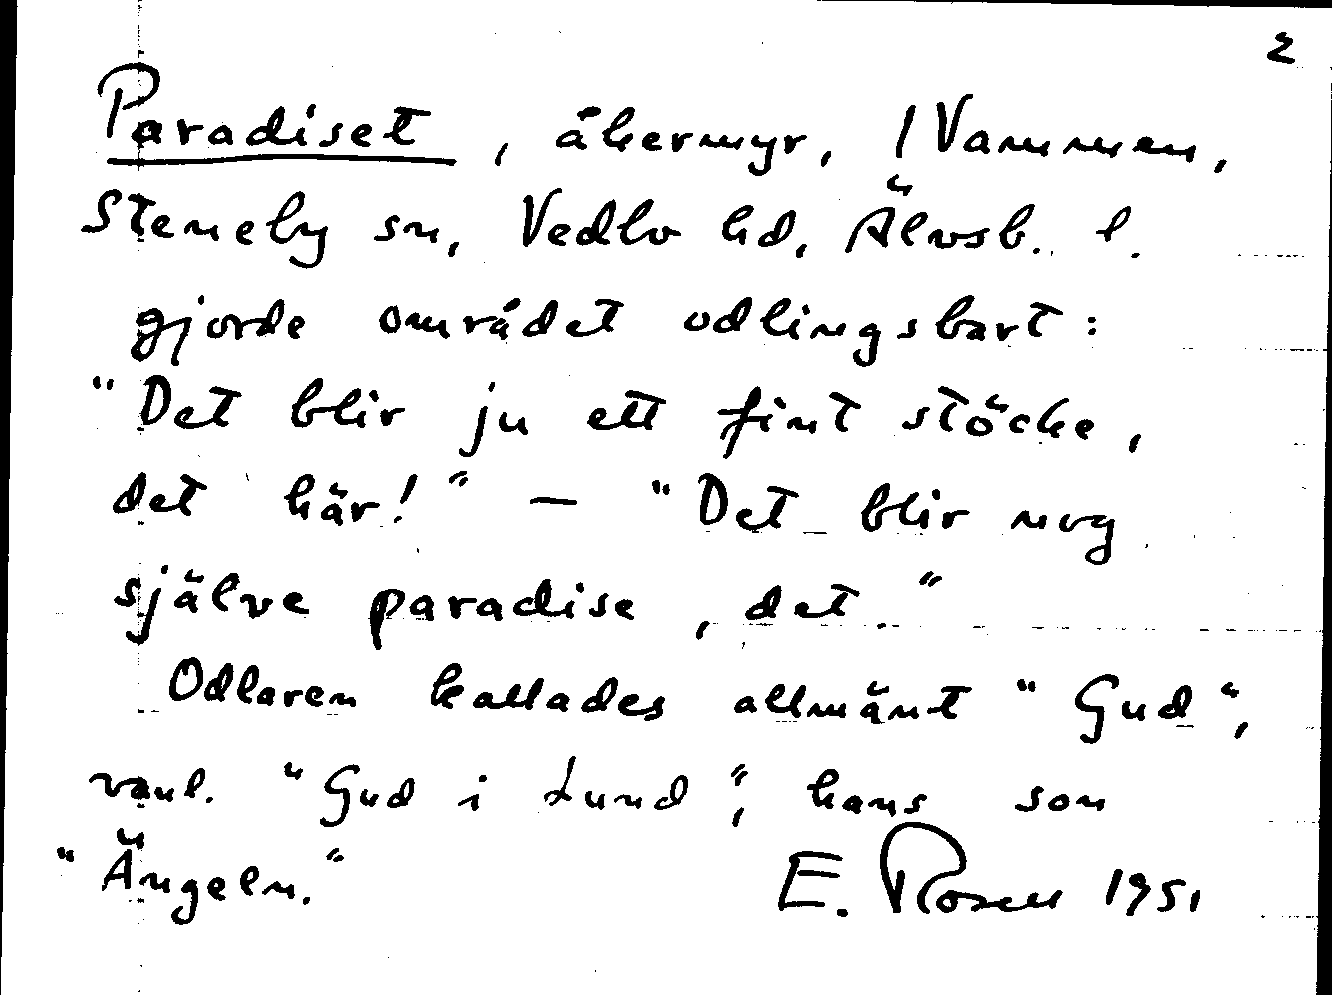 2
Paradiset, åkermyr, / Vammen,
Steneby sn, Vedbo hd, Älvsb. l.
gjorde området odlingsbart:
"Det blir ju ett fint stöcke,
det här!" — "Det blir nog
själve paradise, det."
Odlaren kallades allmänt "Gud",
vanl. "Gud i Lund", hans son
"Ängeln."
E. Rosen 1951